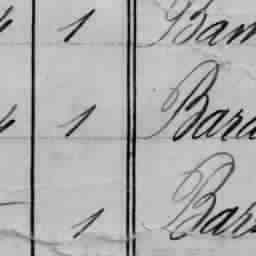 4 1 Bam
4 1 Bara
1 Bar